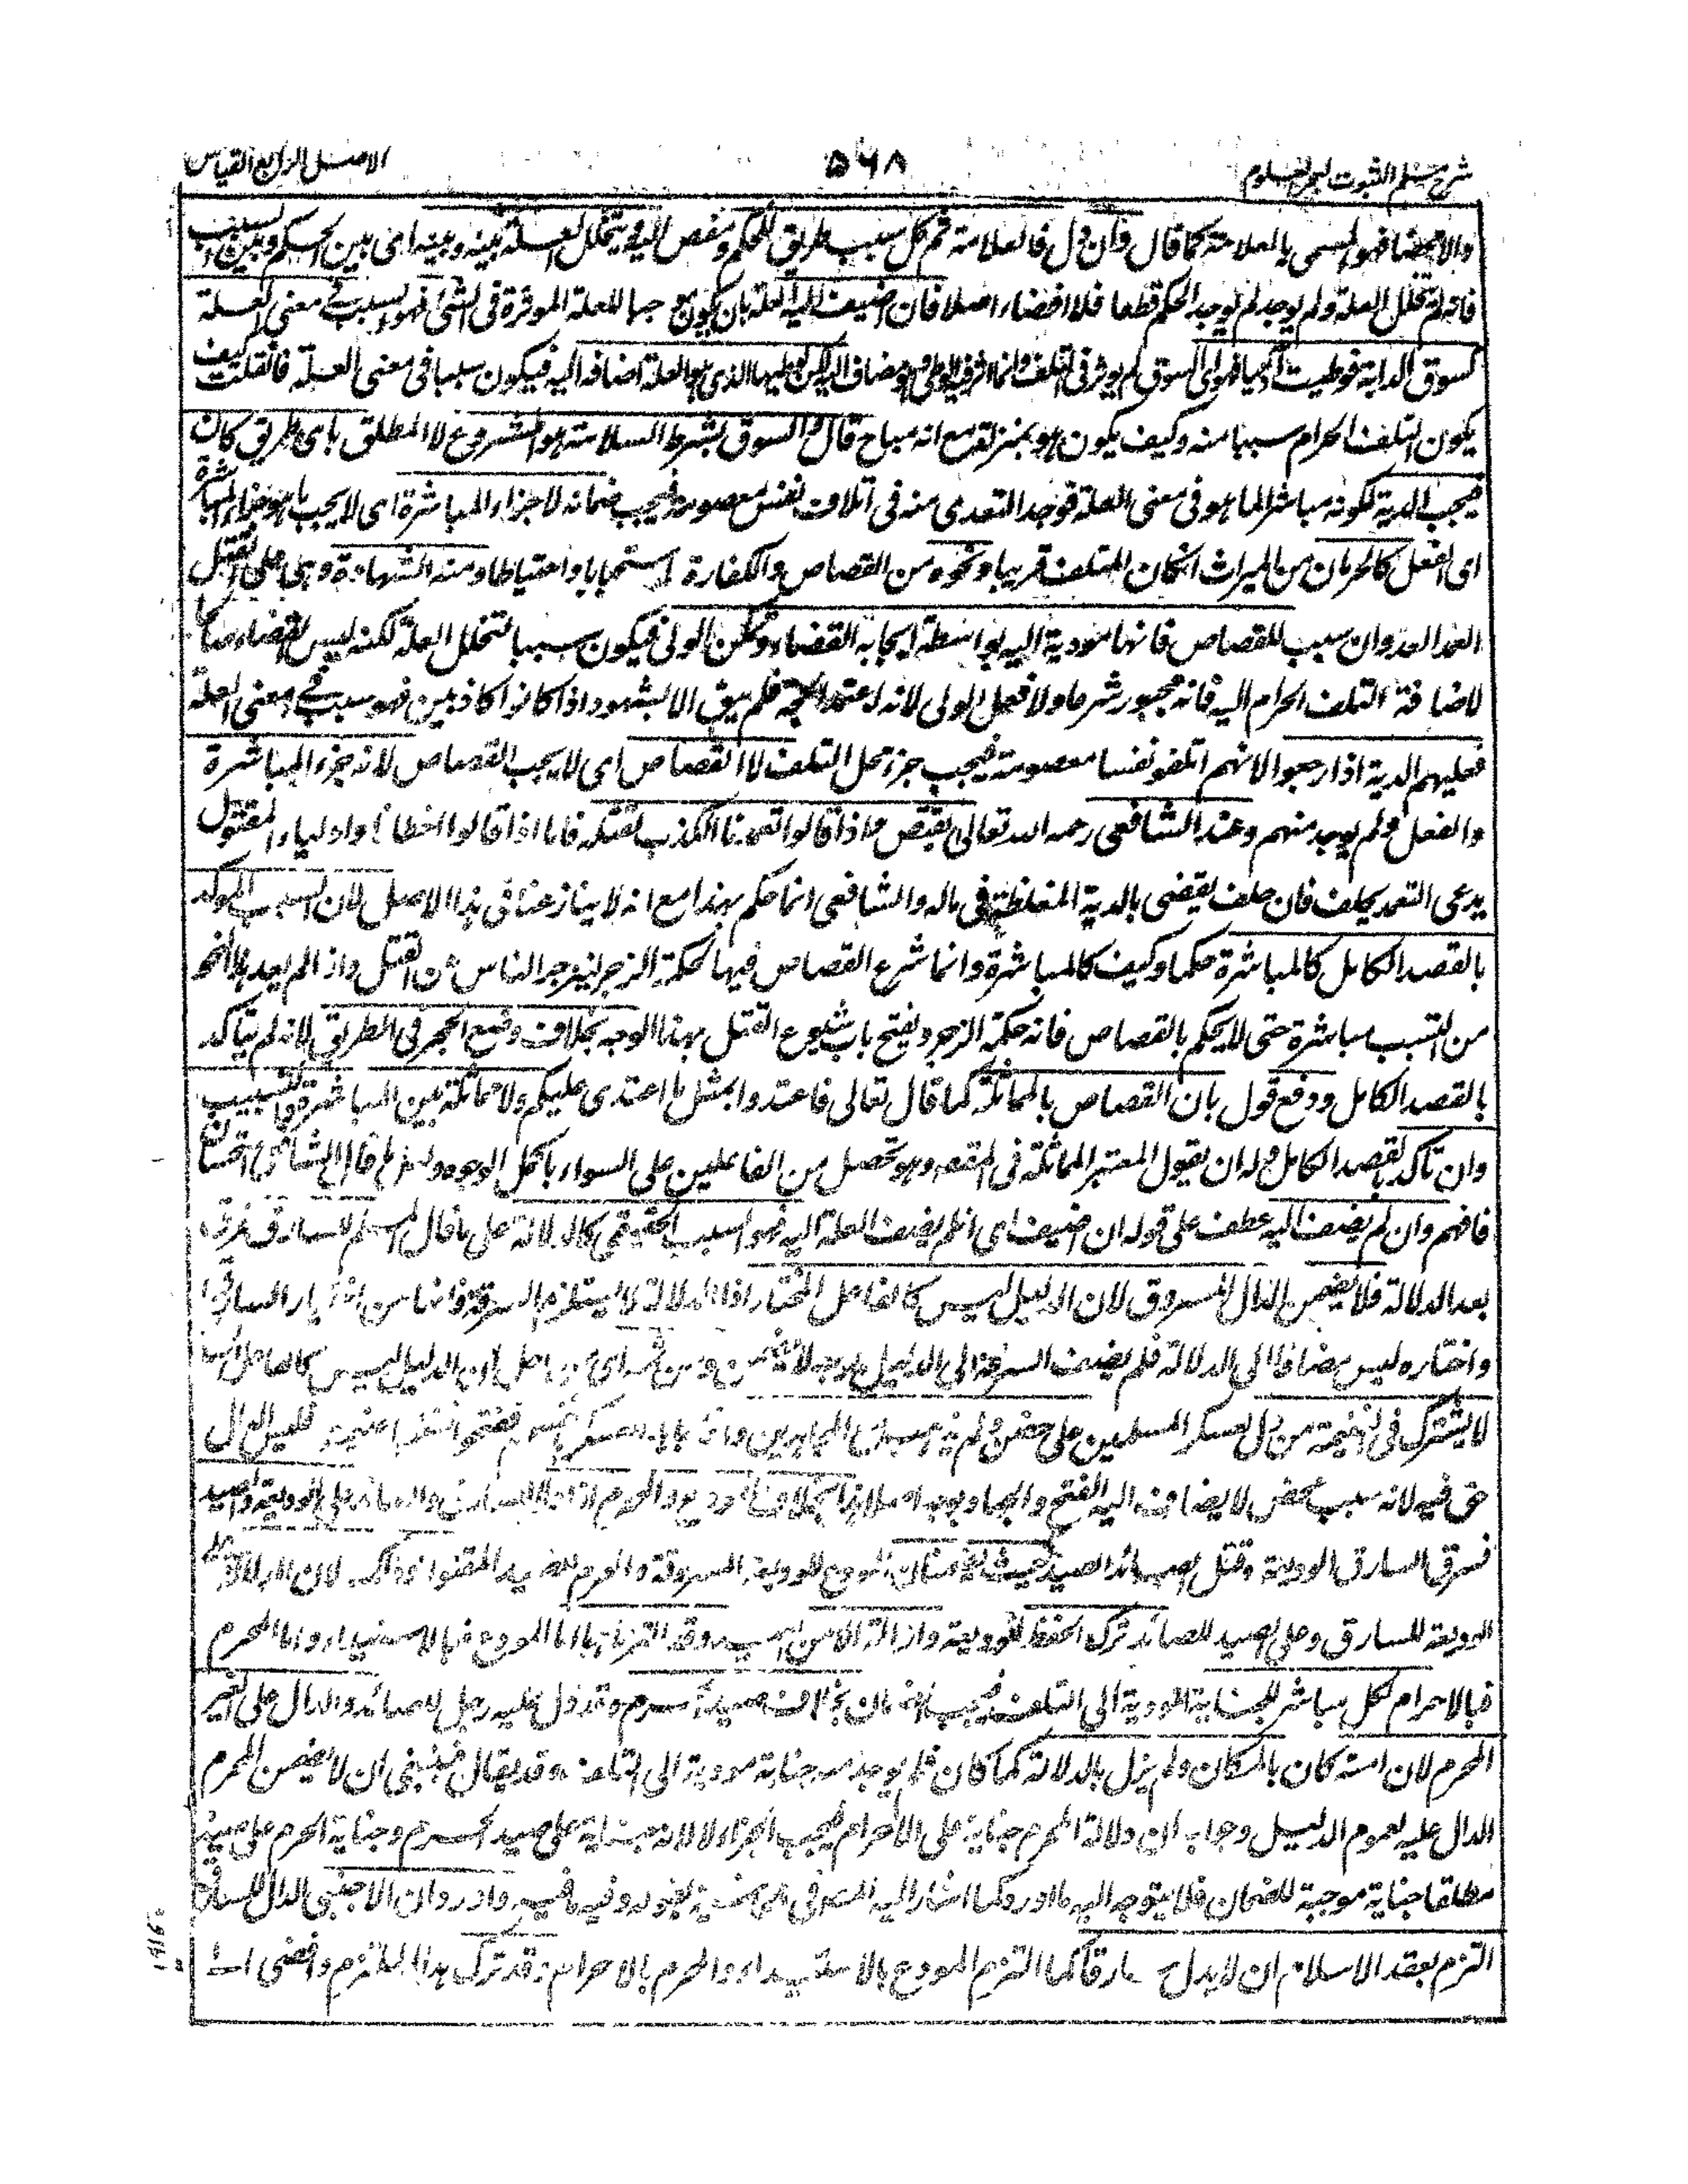 شرح مسلم الثبوت لبحر العلوم
۵۶۸
الاصل الرابع القياس
والا فهو المسمى بالعلامة كما قال وان دل فالعلامة ثم كل سبب طريق للحكم ومفض اليه ويتخلل العلة بينه وبينه اى بين الحكم وبين السبب
فانه لم تتخلل العلة ولم يوجد لم يوجد الحكم قطعا فلا افضاء اصلا فان اضيف اليه العلة بان يكون موجبا للعلة المؤثرة فى الشئ فهو السبب فى معنى العلة
كسوق الدابة فوطيت آدميا فهو اى السوق لم يوثر فى التلف وانما اثر فيه الوطى وهو مضاف اليه فيكون سببا فى معنى العلة فان قلت كيف
يكون التلف الحرام سببا منه وكيف يكون هو بمنزلته مع انه مباح قال والسوق بشرط السلامة هو المشروع لا المطلق باى طريق كان
فيجب الدية لكونه مباشرا لما هو فى معنى العلة فوجد التعدى منه فى اتلاف نفس معصومة فيجب ضمانه لا جزاء المباشرة اى لا يجب ما هو جزاء المباشرة
اى الفعل كالحرمان من الميراث ان كان المتلف قريبا ونحوه من القصاص والكفارة استحبابا واحتياطا ومنه الشهادة وهى على القتل
العمد العدوان سبب للقصاص فانها مودية اليه بواسطة ايجابه القضاء وتمكن الولى فيكون سببا لتخلل العلة لكنه ليس القضاء صالحا
لاضافة التلف الحرام اليه فانه مجبور شرعا ولا فعل الولى لانه اعتمد الحجة فلم يبق الا الشهود اذا كانوا كاذبين فهو سبب فى معنى العلة
فعليهم الدية اذا رجعوا لانهم اتلفوا نفسا معصومة فيجب جزء محل التلف لا القصاص اى لا يجب القصاص لانه جزء المباشرة
والفعل ولم يوجد منهم وعند الشافعى رحمه الله تعالى يقتص اذا قالوا تعمدنا الكذب لقتله فاما اذا قالوا اخطأنا واولياء المقتول
يدعى التعمد يحلف فان حلف يقضى بالدية المغلظة فى ماله والشافعى انما حكم بهذا مع انه لا ينازعنا فى هذا الاصل لان السبب المؤكد
بالقصد الكامل كالمباشرة حكما وكيف كالمباشرة وانما شرع القصاص فيها لحكمة الزجر لينزجر الناس عن القتل واذا لم يعد هذا النحو
من التسبب مباشرة حتى لا يحكم بالقصاص فاته حكمة الزجر ويفتح باب شيوع القتل بهذا الوجه بخلاف وضع الحجر فى الطريق لانه لم يتأكد
بالقصد الكامل ودفع قول بان القصاص بالمماثلة كما قال تعالى فاعتدوا بمثل ما اعتدى عليكم ولا مماثلة بين المباشرة والتسبيب
وان تأكد بالقصد الكامل وله ان يقول المعتبر المماثلة فى المقصد وهو تحصل من الفاعلين على السواء باكمل الوجوه ولهذا قال الشافعى
فافهم وان لم يضف اليه عطف على قوله ان اضيف اى ان لم يضف العلة اليه فهو السبب الحقيقى كالدلالة على مال المسلم لسارق فسرقه
بعد الدلالة فلا يضمن الدال المسروق لان الدليل ليس كالفاعل المختار اذ الدلالة لا يستلزم السرقة وانما من اختيار السارق
واختاره ليس مضافا الى الدلالة فلم يضف السرقة الى الدليل بوجه لا يضمن ومن ثمه اى من اجل ان الدليل ليس كالفاعل
لا يشترك فى الغنيمة من دل عسكر المسلمين على حصن ولم يذهب مع المجاهدين فليس للدال
حق فيه لانه سبب محض لا يضاف اليه الفتح والجهاد بوجه اصلا بخلاف المودع والمحرم اذا دلا السارق والصائد على الوديعة والصيد
فسرق السارق الوديعة وقتل الصائد الصيد حيث يضمنان المودع للوديعة المسروقة والمحرم للصيد المقتول وذلك لان الدلالة على
الوديعة للسارق وعلى الصيد للصائد ترك الحفظ للوديعة وازالة الامن للصيد وقد التزماها اما المودع فبالاستيداع واما المحرم
فبالاحرام فكل مباشر للجناية المودية الى التلف فيجب الضمان بخلاف صيد الحرم وقد دل عليه رجل لصائد والدال على الغير
المحرم لان امنه كان بالمكان ولم يزل بالدلالة كما كان فلم يوجد منه جناية مودية الى التلف وقد يقال فينبغى ان لا يضمن المحرم
الدال عليه لعموم الدليل وجوابه ان دلالة المحرم جناية على الاحرام فيجب الجزاء لا لانه جناية على صيد الحرم وجناية المحرم على صيد
مطلقا جناية موجبة للضمان فلا يتوجه اليه ما اورد كما اشار اليه المصنف فى الحاشية بقوله وفيه ما فيه واورد وان الاجنبى الدال للسارق
التزم بعقد الاسلام ان لا يدل سارقا كما التزم المودع بالاستيداع والمحرم بالاحرام وقد ترك هذا الملتزم وافضى الى